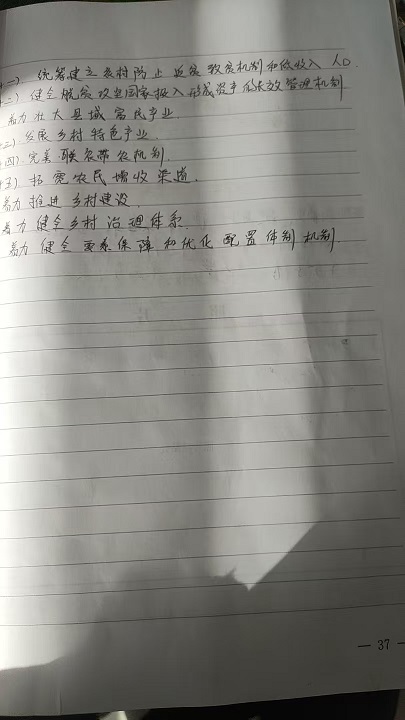 二) 统筹建立农村防止返贫致贫机制和低收入人口
二) 健全脱贫攻坚国家投入形成资产的长效管理机制
着力壮大县域富民产业
三) 发展乡村特色产业.
四) 完善联农带农机制.
五) 拓宽农民增收渠道.
着力推进乡村建设.
着力健全乡村治理体系.
着力健全要素保障和优化配置体制机制.
— 37 —